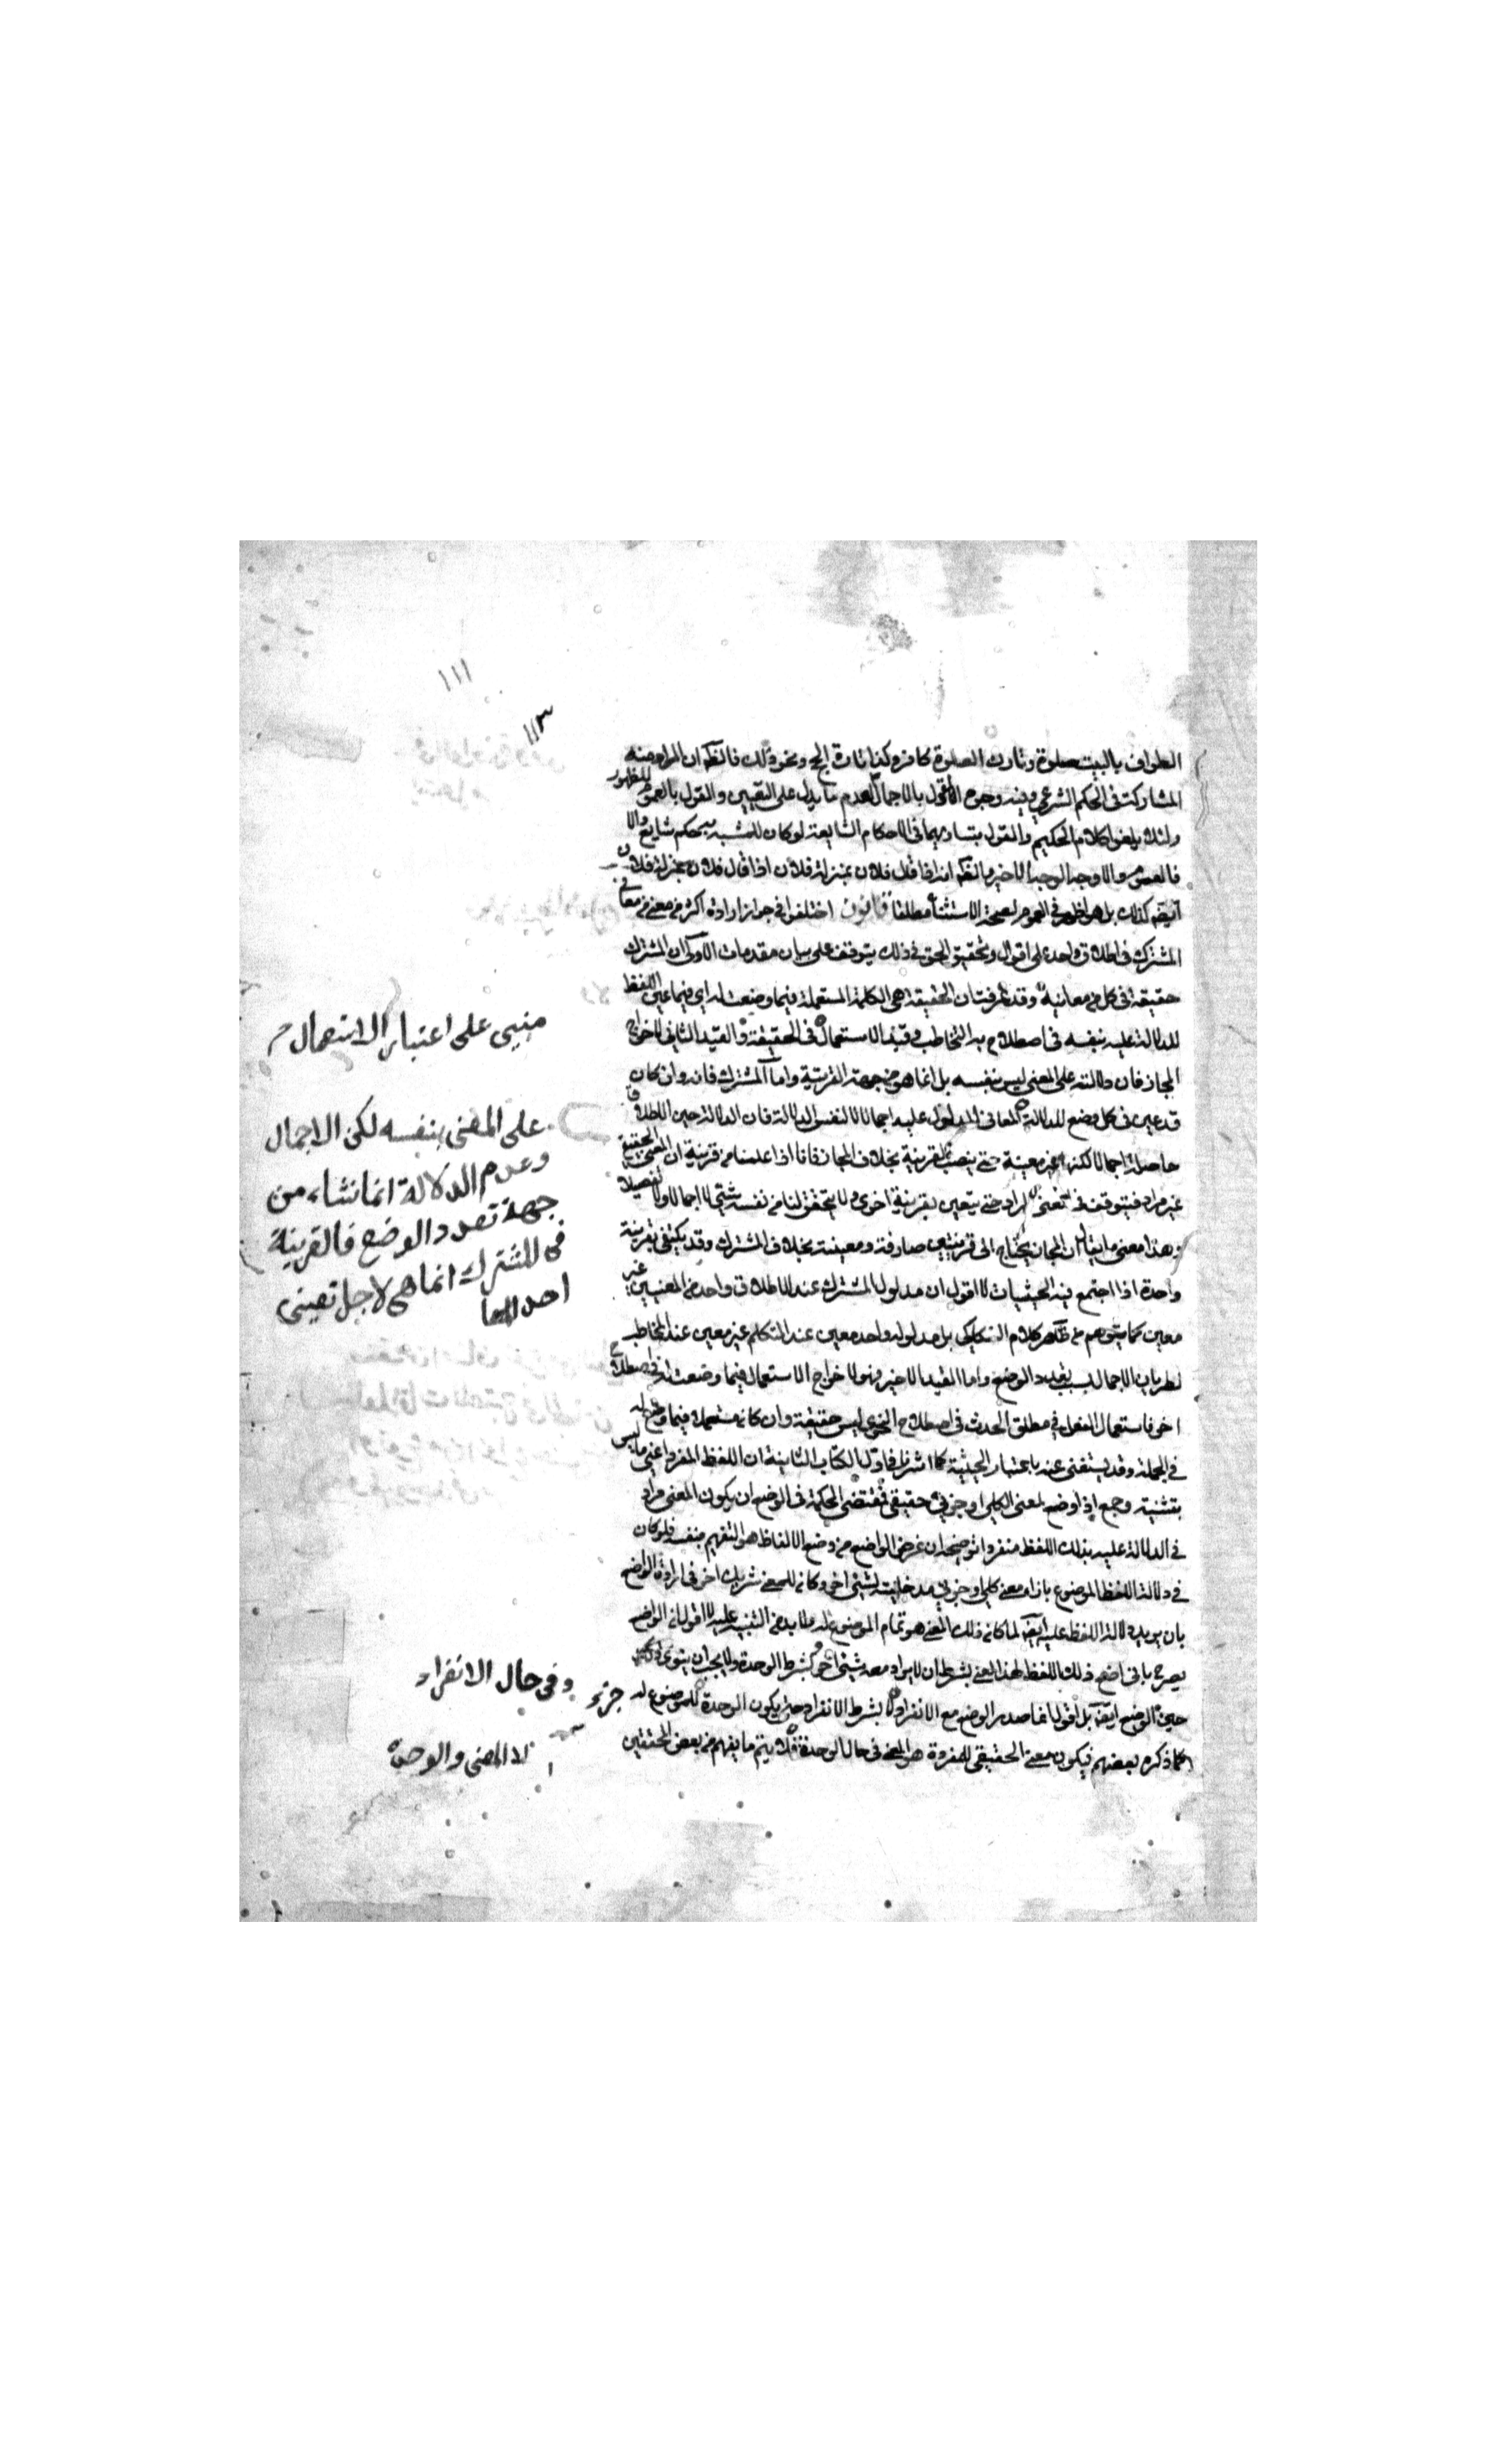 ١١١
١١٣
الطواف بالبيت صلوة وتارك الصلوة كافر وكذا تارك الحج ونحو ذلك فالظ ان المراد منه
المشاركة في الحكم الشرعي وفيه وجوه القول بالاجمال لعدم ما يدل على التعيين والقول بالعموم للظهور
ولئلا يلغو كلام الحكيم والقول بتساويهما في الاحكام الشايعة لو كان للمشبه به حكم شايع والا
فالعموم والاوجه الوجه الاخير والظ انه اذا قال فلان بمنزلة فلان اذا قال فلان بمنزلة فلان
ايضا كذلك بل هو اظهر في العموم لصحة الاستثناء مطلقا قانون اختلفوا في جواز ارادة اكثر من معنى من معاني
المشترك في اطلاق واحد على اقوال وتحقيق الحق في ذلك يتوقف على بيان مقدمات الاولى ان المشترك
حقيقة في كل من معانيه وقد عرفت ان الحقيقة هي الكلمة المستعملة فيما وضعت له اي فيما عين اللفظ
للدلالة عليه بنفسه في اصطلاح به التخاطب وقيد الاستعمال في الحقيقة والقيد الثاني لاخراج
المجاز فان دلالته على المعنى ليس بنفسه بل انما هو من جهة القرينة واما المشترك فانه وان كان
قد عين في كل وضع للدلالة المعاني المدلول عليه اجمالا لا لنفس الدلالة فان الدلالة حين الاطلاق
حاصلة اجمالا لكنها غير معينة حتى ينصب القرينة بخلاف المجاز فانا اذا علمنا من قرينة ان المعنى الحقيقي
غير مراد فيتوقف في معنى المراد حتى يتعين بقرينة اخرى ولا يتحقق لنا من نفسه شيء لا اجمالا ولا تفصيلا
وهذا معنى ما يقال ان المجاز يحتاج الى قرينتين صارفة ومعينة بخلاف المشترك وقد يكتفى بقرينة
واحدة اذا اجتمع فيه الحيثيات لا اقول ان مدلول المشترك عند الاطلاق واحد من المعنيين غير
معين كما يتوهم من ظاهر كلام السكاكي بل مدلوله واحد معين عند المتكلم غير معين عند المخاطب
لطريان الاجمال بسبب تعدد الوضع واما القيد الاخير فهو لاخراج الاستعمال فيما وضعت له في اصطلاح
اخر فاستعمال الفعل في مطلق الحدث في اصطلاح النحوي ليس حقيقة وان كان مستعملا فيما وضع له
في الجملة وقد يستغنى عنه باعتبار الحيثية كما اشرنا في اول الكتاب الثانية ان اللفظ المفرد اعني ما ليس
بتثنية وجمع اذا وضع لمعنى الكلي او جزئي حقيقي فمقتضى الحكمة في الوضع ان يكون المعنى مراد
في الدلالة عليه بذلك اللفظ منفردا توضيحه ان غرض الواضع من وضع الالفاظ هو التفهيم بنفسه فلو كان
في دلالة اللفظ الموضوع بازاء معنى كلي او جزئي مدخلية لشيء اخر وكان للمعنى شريك اخر في ارادة الواضع
بان يريد دلالة اللفظ عليه ايضا لما كان ذلك المعنى هو تمام الموضوع له فلا بد من التنبيه عليه لا اقول ان الواضع
يصرح باني اضع ذلك اللفظ لهذا المعنى بشرط ان لا يراد معه شيء اخر وبشرط الوحدة ولا يجب ان ينوي ذلك
حين الوضع ايضا بل اقول انما صدر الوضع مع الانفراد لا بشرط الانفراد حتى يكون الوحدة جزء للموضوع له
كما ذكره بعضهم فيكون معنى الحقيقي للمفردة هو المعنى في حال الوحدة فلا يتم ما يفهم من بعض المحققين
مبني على اعتبار الاستعمال
على المعنى بنفسه لكن الاجمال
وعدم الدلالة انما نشاء من
جهة تعدد الوضع فالقرينة
في المشترك انما هي لاجل تعيين
احد المعا
وفي حال الانفراد
لا المعنى والوحدة